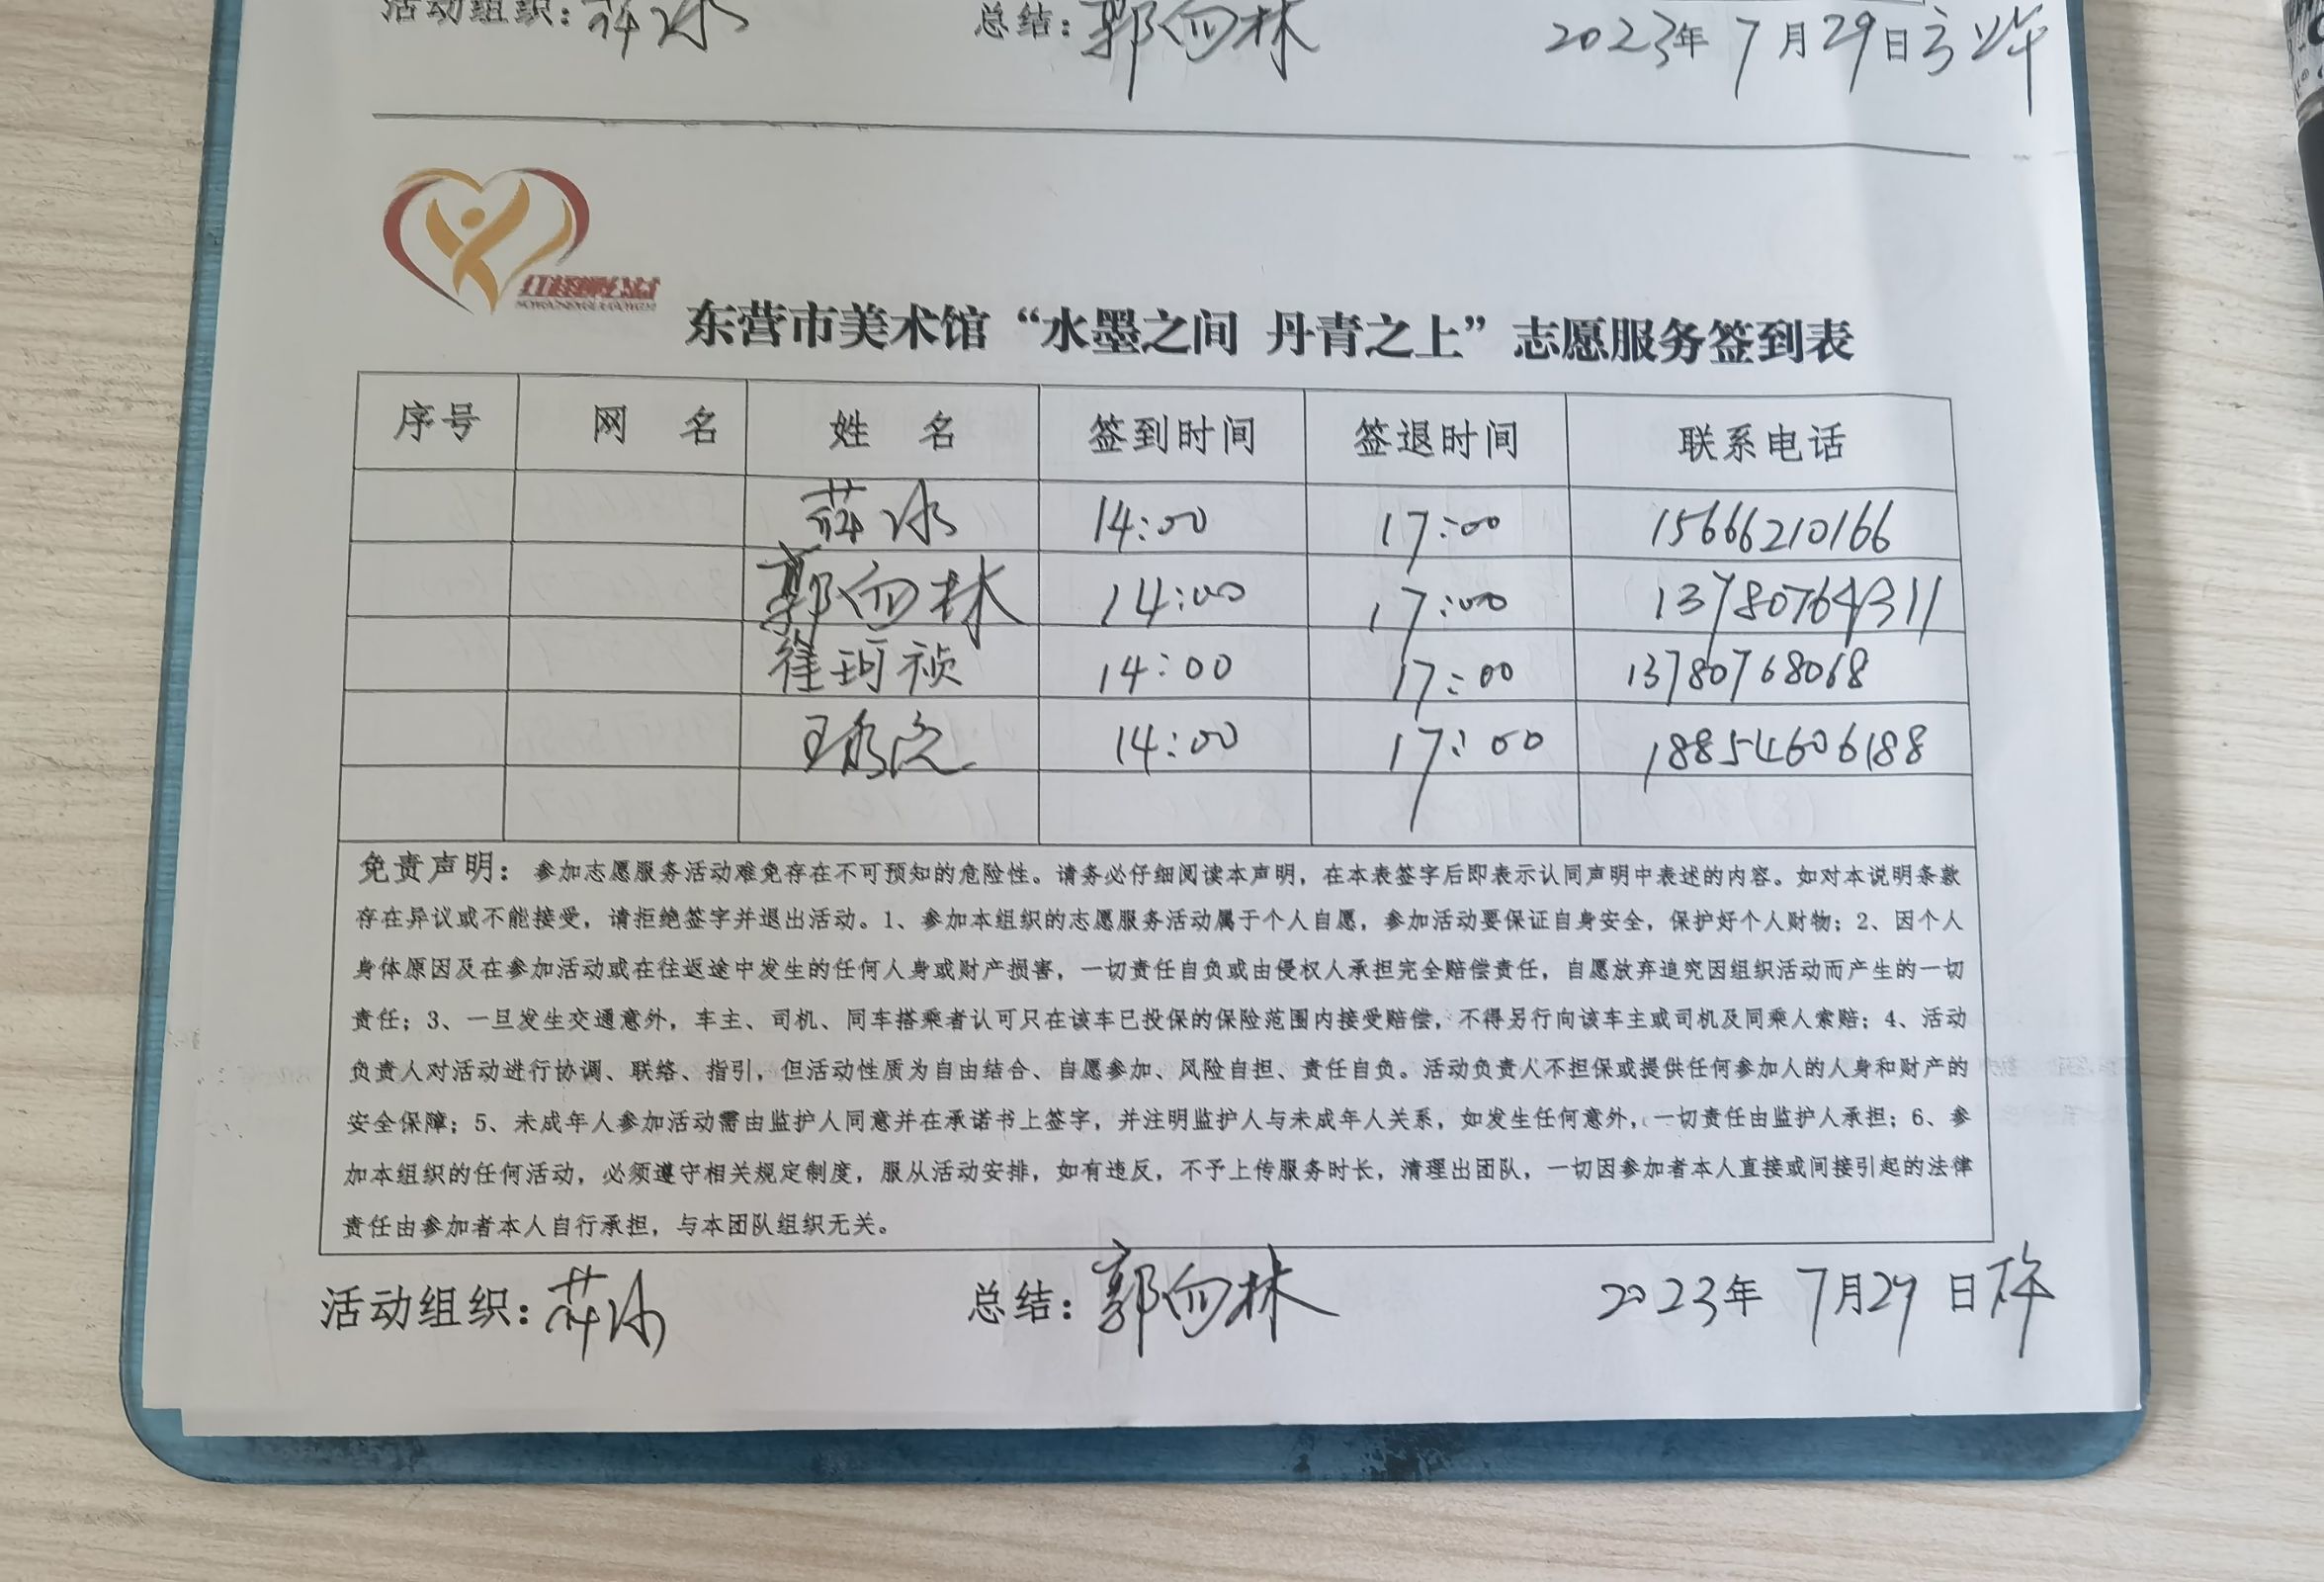 活动组织: 薛冰 总结: 郭向林 2023年 7月29日 上午
东营市美术馆“水墨之间 丹青之上”志愿服务签到表
序号 网 名 姓 名 签到时间 签退时间 联系电话
薛冰 14:00 17:00 15666210166
郭向林 14:00 17:00 13780764311
崔珂祯 14:00 17:00 13780768068
14:00 17:00 18854606188
免责声明: 参加志愿服务活动难免存在不可预知的危险性。请务必仔细阅读本声明，在本表签字后即表示认同声明中表述的内容。如对本说明条款
存在异议或不能接受，请拒绝签字并退出活动。1、参加本组织的志愿服务活动属于个人自愿，参加活动要保证自身安全，保护好个人财物；2、因个人
身体原因及在参加活动或在往返途中发生的任何人身或财产损害，一切责任自负或由侵权人承担完全赔偿责任，自愿放弃追究因组织活动而产生的一切
责任；3、一旦发生交通意外，车主、司机、同车搭乘者认可只在该车已投保的保险范围内接受赔偿，不得另行向该车主或司机及同乘人索赔；4、活动
负责人对活动进行协调、联络、指引，但活动性质为自由结合、自愿参加、风险自担、责任自负。活动负责人不担保或提供任何参加人的人身和财产的
安全保障；5、未成年人参加活动需由监护人同意并在承诺书上签字，并注明监护人与未成年人关系，如发生任何意外，一切责任由监护人承担；6、参
加本组织的任何活动，必须遵守相关规定制度，服从活动安排，如有违反，不予上传服务时长，清理出团队，一切因参加者本人直接或间接引起的法律
责任由参加者本人自行承担，与本团队组织无关。
活动组织: 薛冰 总结: 郭向林 2023年 7月29日 下午